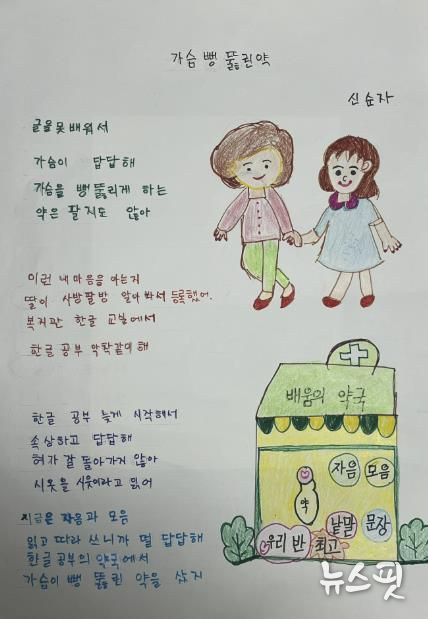 가슴 뻥 뚫린약
신순자
글을 못 배워서
가슴이 답답해
가슴을 뻥 뚫리게 하는
약은 팔지도 않아
이런 내 마음을 아는지
딸이 사방팔방 알아봐서 등록했어.
복지관 한글 교실에서
한글 공부 악착같이 해
한글 공부 늦게 시작해서
속상하고 답답해
혀가 잘 돌아가지 않아
시옷을 시옷이라고 읽어
지금은 자음과 모음
읽고 따라 쓰니까 덜 답답해
한글 공부의 약국에서
가슴이 뻥 뚫린 약을 샀지
배움의 약국
자음 모음
약
낱말 문장
우리 반 최고
뉴스핏